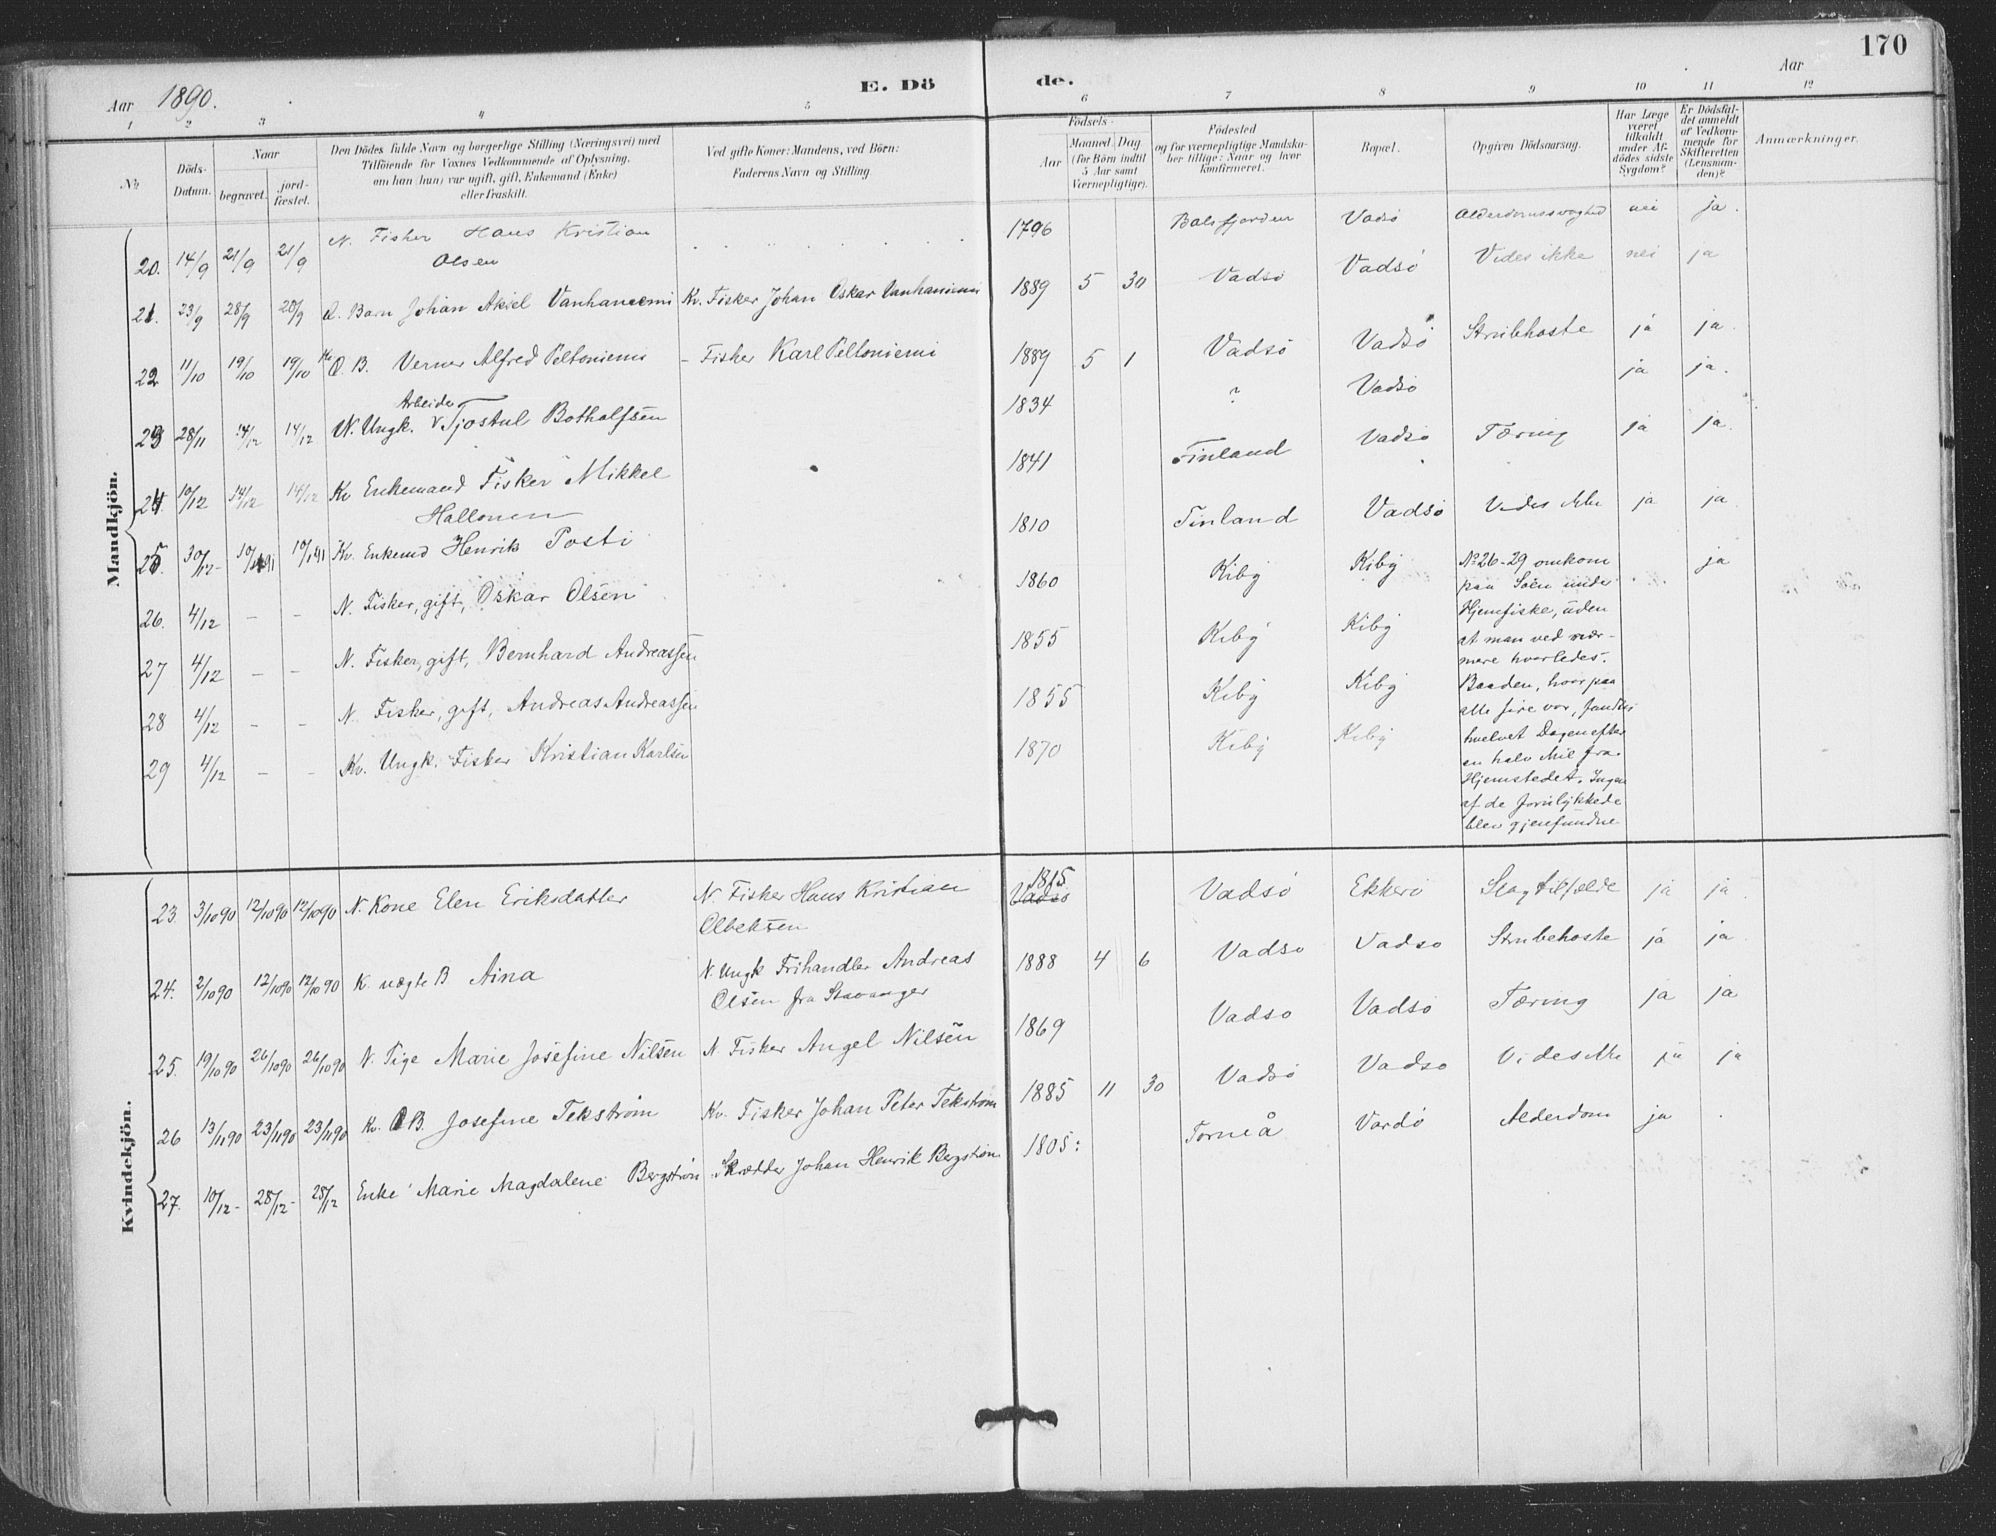 170
Aar 1890.
E. Dö
de.
Aar
1 2 3 4 5 6 7 8 9 10 11 12
№
Döds-Datum.
Naar
begravet.
jord-fæstet.
Den Dödes fulde Navn og borgerlige Stilling (Næringsvei) med
Tilföiende for Voxnes Vedkommende af Oplysning,
om han (hun) var ugift, gift, Enkemand (Enke)
eller fraskilt.
Ved gifte Koner: Mandens, ved Börn:
Faderens Navn og Stilling.
Födsels-
Aar
Maaned. Dag
(for Börn indtil
5 Aar samt
Værnepligtige).
Födested
og for værnepligtige Mandska-
ber tillige: Naar og hvor
konfirmeret.
Bopæl.
Opgiven Dödsaarsag.
Har Læge
været
tilkaldt
under Af-
dödes sidste
Sygdom?
Er Dödsfal-
det anmeldt
af Vedkom-
mende for
Skifteretten
(Lensman-
den)?
Anmærkninger.
Mandkjön.
20. 14/9 21/9 21/9 N. Fisker Hans Kristian
Olsen
1796 Balsfjorden Vadsö Alderdomssvaghed nei ja.
21. 23/9 28/9 28/9 Barn Johan Aksel Vanhaniemi Kv. Fisker Johan Oskar Vanhaniemi 1889 5 30 Vadsö Vadsö Vides ikke nei ja
22 11/10 19/10 19/10 Kv. Æ. B. Verner Alfred Peltoniemi – Fisker Karl Peltoniemi 1889 5 1 Vadsö Vadsö Strubehoste ja ja.
Arbeider
23 28/11 14/12 14/12 N. Ungk. Tjostul Botholfsen 1834 ? Vadsö ja ja.
24. 10/12 14/12 14/12 Kv Enkemand Fisker Mikkel
Hallonen
1841 Finland Vadsö Tæring ja ja.
25. 30/12- 10/1 91 10/1 91 Kv. Enkemd Henrik Posti 1810 Finland Vadsö Vides ikke ja ja.
26. 4/12 – – N. Fisker, gift, Oskar Olsen 1860 Kiby Kiby ja
27 4/12 – – N. Fisker, gift, Bernhard Andreassen 1855 Kiby Kiby
28 4/12 – – N. Fisker, gift, Andreas Andreassen 1855 Kiby Kiby
29 4/12 – – Kv. Ungk. Fisker Kristian Karlsen 1870 Kiby Kiby
No 26-29 omkom
paa Söen under
Hjemfiske, uden
at man ved nær-
mere hvorledes.
Baaden, hvor paa
alle fire var, fandtes
hvelvet Dagen efter
en halv Mil fra
Hjemstedet. Ingen
af de forulykkede
blev gjenfundne
Kvindekjön.
23. 3/10 90 12/10 90 12/10 90 N. Kone Elen Eriksdatter N. Fisker Hans Kristian
Olbeksen
1815
Vadsö
Vadsö Ekkerö Slagtilfælde ja ja
24. 2/10 90 12/10 90 12/10 90 K. uægte B Aina N. Ungk Frihandler Andreas
Olsen fra Stavanger
1888 4 6 Vadsö Vadsö Strubehoste ja ja
25. 19/10 90 26/10 90 26/10 90 N. Pige Marie Josefine Nilsen N. Fisker Angel Nilsen 1869 Vadsö Vadsö Tæring ja ja
26 13/11 90 23/11 90 23/11 90 Kv. Æ B. Josefine Tekström Kv. Fisker Johan Peter Tekström 1885 11 30 Vadsö Vadsö Vides ikke ja ja
27. 10/12- 28/12- 28/12 Enke Marie Magdalene Bergström Skrædder Johan Henrik Bergström 1805: Torneå Vardö Alderdom ja .